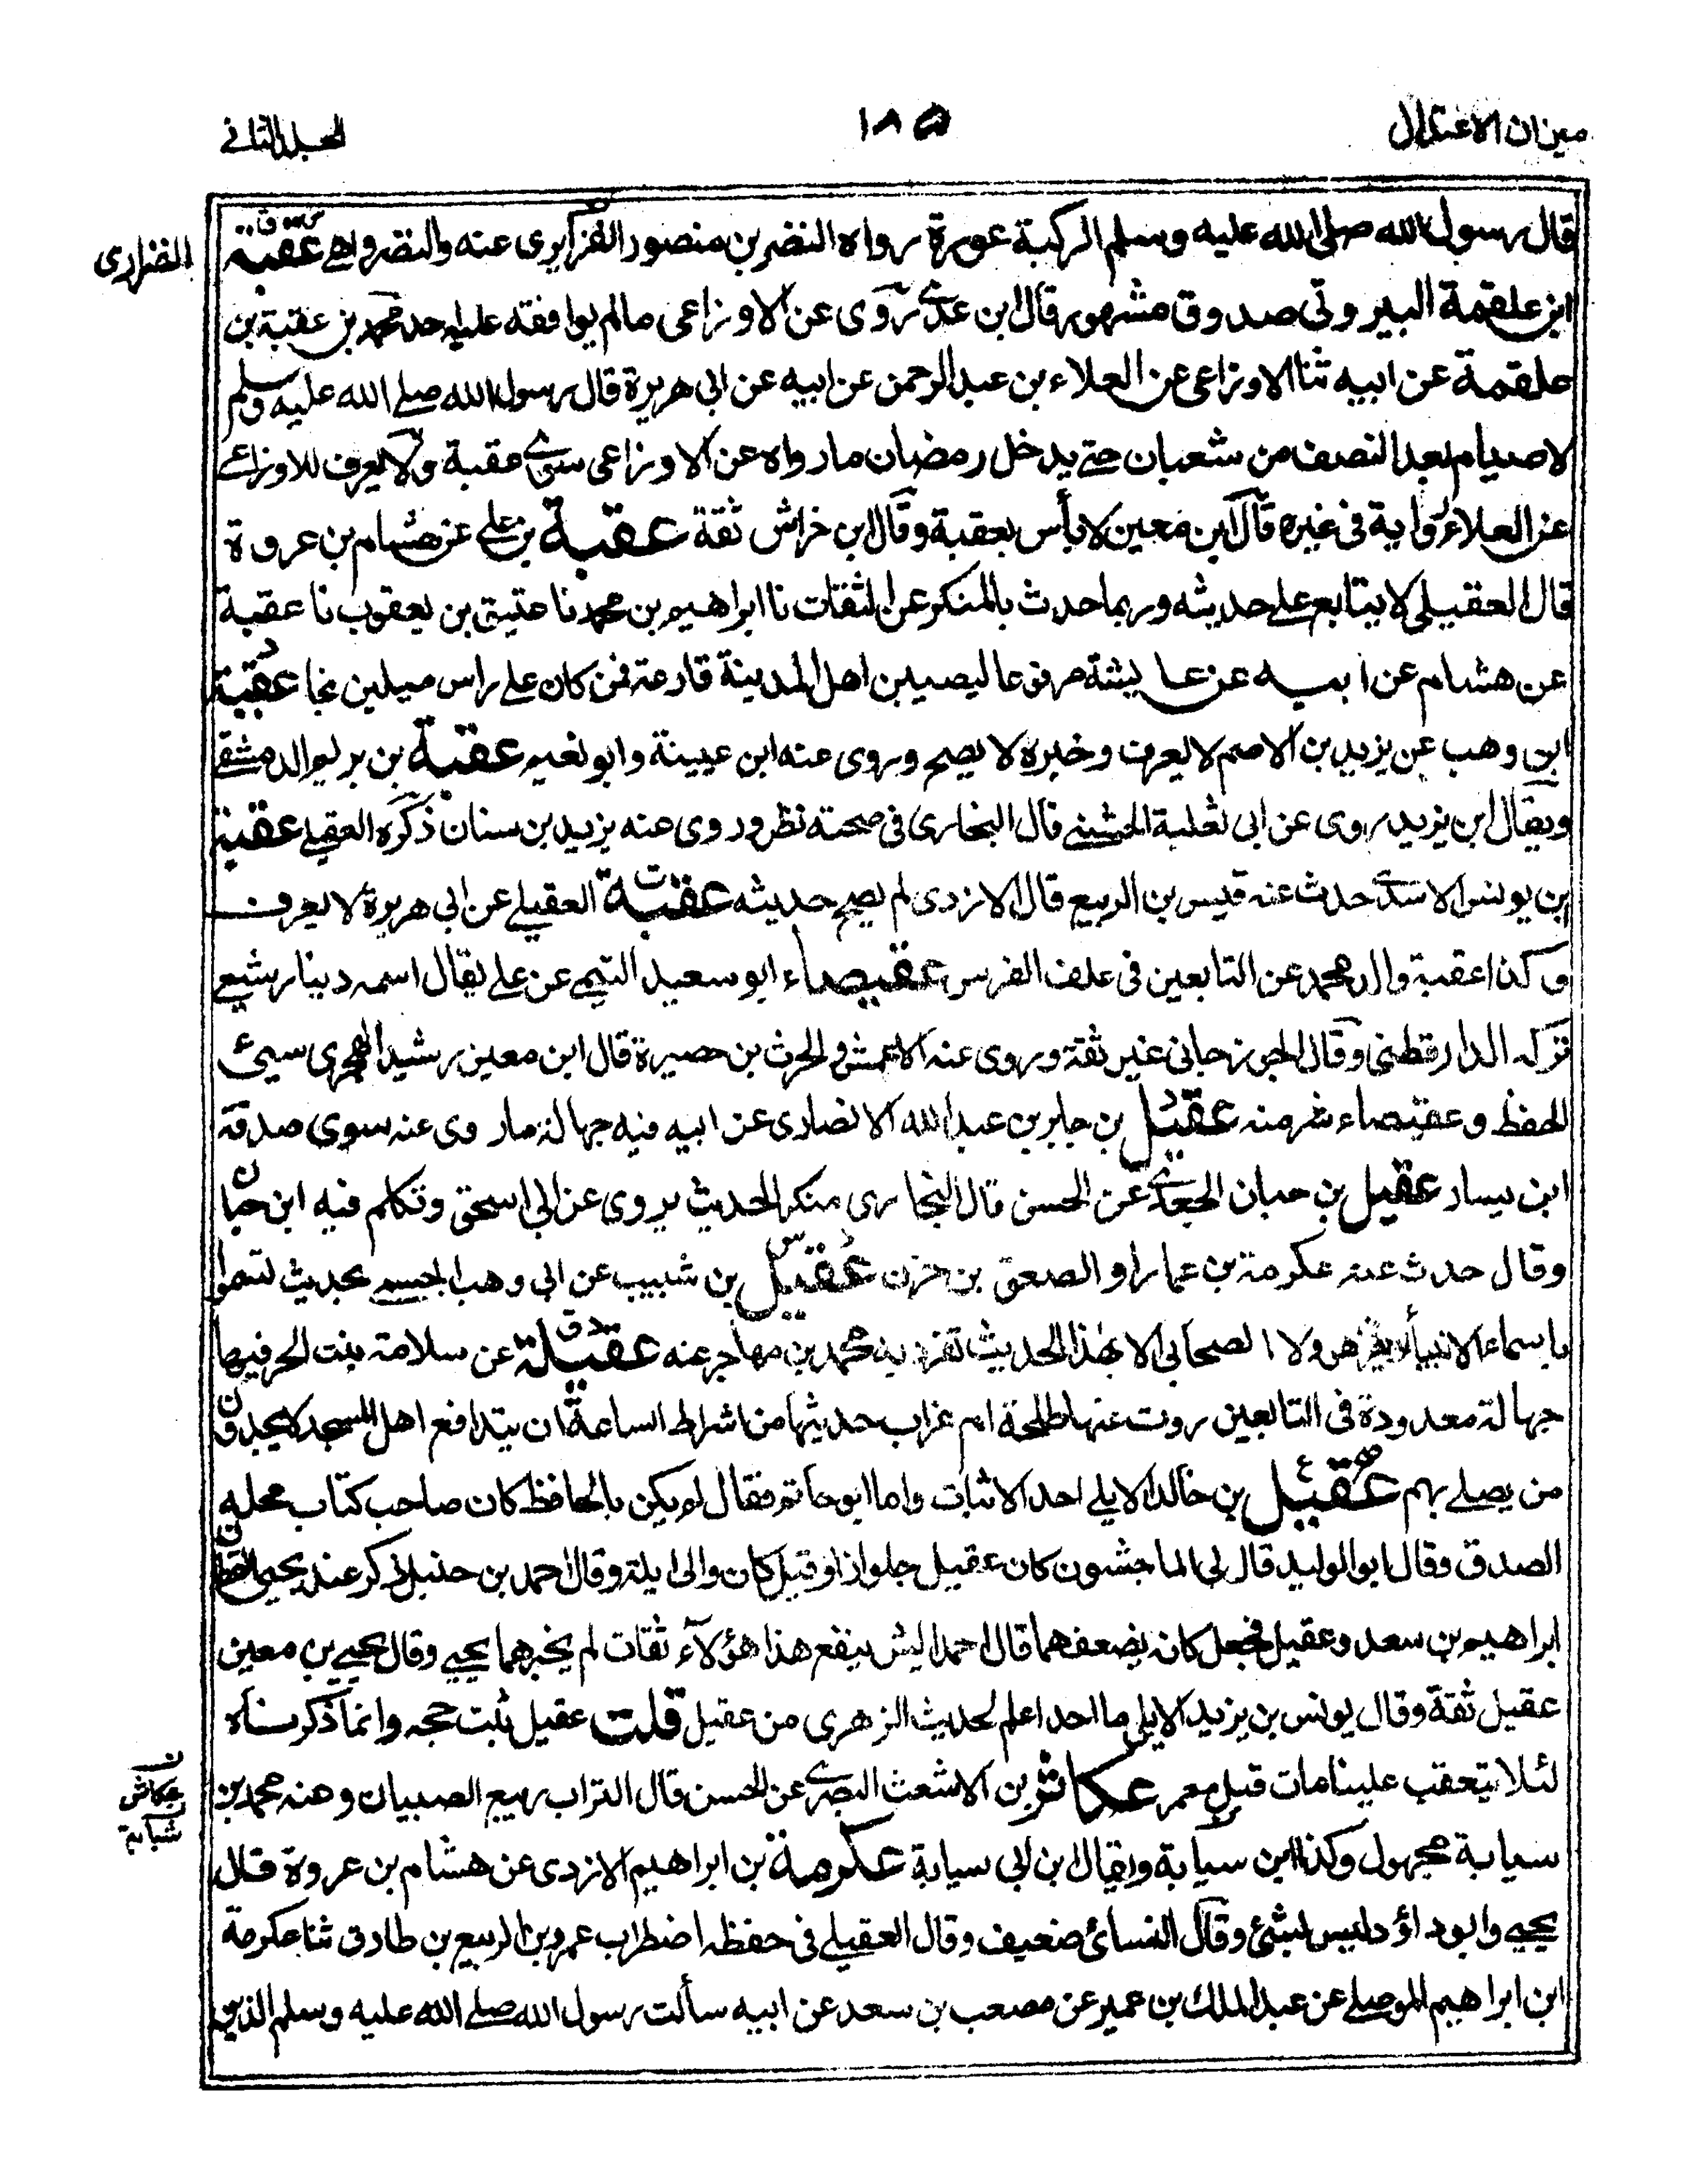 ميزان الاعتدال
١٨٥
المجلد الثاني
قال رسول الله صلى الله عليه وسلم الركبة عورة رواه النضر بن منصور الفزايرى عنه والنضر واه عقبة
الفزارى
ابن علقمة البيروتى صدوق مشهور قال ابن عدى روى عن الاوزاعى مالم يوافقه عليه احد محمد بن عقبة بن
علقمة عن ابيه ثنا الاوزاعى عن العلاء بن عبد الرحمن عن ابيه عن ابى هريرة قال رسول الله صلى الله عليه وسلم
لا صيام بعد النصف من شعبان حتى يدخل رمضان ما رواه عن الاوزاعى سوى عقبة ولا يعرف للاوزاعى
عن العلاء رواية فى غيره قال ابن معين لا بأس بعقبة وقال ابن خراش ثقة عقبة بن على عن هشام بن عروة
قال العقيلى لا يتابع على حديثه وربما حدث بالمنكر عن الثقات نا ابراهيم بن محمد نا عتيق بن يعقوب نا عقبة
عن هشام عن ابيه عن عايشة مرفوعا ليصيبن اهل المدينة قارعة فمن كان على راس ميلين نجا عقبة
ابن وهب عن يزيد بن الاصم لا يعرف وخبره لا يصح وروى عنه ابن عيينة وابو نعيم عقبة بن بريم الدمشقى
ويقال ابن يزيد روى عن ابى ثعلبة الخشنى قال البخارى فى صحته نظر وروى عنه يزيد بن سنان ذكره العقيلى عقبة
بن يونس الاسدى حدث عنه قيس بن الربيع قال الازدى لم يصح حديثه عقبة العقيلى عن ابى هريرة لا يعرف
وكذا عقبة والد محمد عن التابعين فى علف الفرس عقيصاء ابو سعيد التيمى عن على يقال اسمه دينار شيعى
تركه الدارقطنى وقال الجوزجانى غير ثقة وروى عنه الاعمش والحرث بن حصيرة قال ابن معين رشيد الهجرى سيئ
الحفظ وعقيصاء شر منه عقيل بن جابر بن عبد الله الانصارى عن ابيه فيه جهالة ما روى عنه سوى صدقة
ابن يسار عقيل بن حبان الجعدى عن الحسن قال البخارى منكر الحديث يروى عن ابى اسحق وتكلم فيه ابن حبان
وقال حدث عنه عكرمة بن عمار او الصعق بن حزن عقيل بن شبيب عن ابى وهب الجسمى بحديث تسموا
باسماء الانبياء لا يعرف هو ولا الصحابى الا بهذا الحديث تفرد به محمد بن مهاجر عنه عقيلة عن سلامة بنت الحر فيها
جهالة معدودة فى التابعين روت عنها طلحة ام غراب حديثها من اشراط الساعة ان يتدافع اهل المسجد لا يجدون
من يصلى بهم عقيل بن خالد الايلى احد الاثبات واما ابو حاتم فقال لم يكن بالحافظ كان صاحب كتاب محله
الصدق وقال ابو الوليد قال لى الماجشون كان عقيل جلوازا وقيل كان والى ايلة وقال احمد بن حنبل ذكر عند يحيى القطان
ابراهيم بن سعد وعقيل فجعل كانه يضعفهما قال احمد ايش ينفع هذا هؤلاء ثقات لم يخبرهما يحيى وقال يحيى بن معين
عقيل ثقة وقال يونس بن يزيد الايلى ما احد اعلم لحديث الزهرى من عقيل قلت عقيل ثبت حجه وانما ذكرناه
لئلا يتعقب علينا مات قبل معمر عكاش بن الاشعث البصرى عن الحسن قال التراب ربيع الصبيان وعنه محمد بن
عكاش
شبابة
سيابة مجهول وكذا ابن سيابة ويقال ابن ابى سيابة عكرمة بن ابراهيم الازدى عن هشام بن عروة قال
يحيى وابو داؤد ليس بشئ وقال النسائ ضعيف وقال العقيلى فى حفظه اضطراب عمرو بن الربيع بن طارق ثنا عكرمة
ابن ابراهيم الموصلى عن عبد الملك بن عمير عن مصعب بن سعد عن ابيه سألت رسول الله صلى الله عليه وسلم الذين